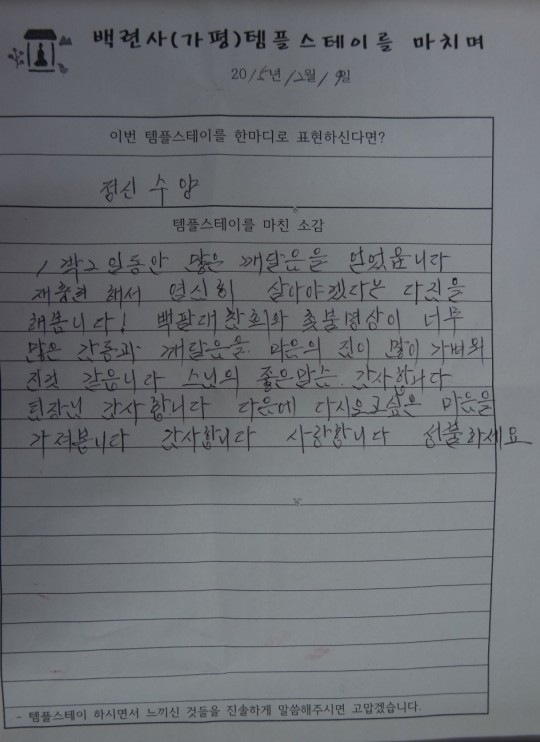 백련사(가평)템플스테이를 마치며
2015년 12월 19일
이번 템플스테이를 한마디로 표현하신다면?
정신 수양
템플스테이를 마친 소감
1박2일동안 많은 깨달음을 얻었습니다
재충전 해서 열심히 살아야겠다는 다짐을
해봅니다! 백팔대참회와 촛불명상이 너무
많은 감동과 깨달음을 마음의 짐이 많이 가벼워
진것 같습니다 스님의 좋은말씀 감사합니다
팀장님 감사합니다 다음에 다시오고싶은 마음을
가져봅니다 감사합니다 사랑합니다 성불하세요
- 템플스테이 하시면서 느끼신 것들을 진솔하게 말씀해주시면 고맙겠습니다.